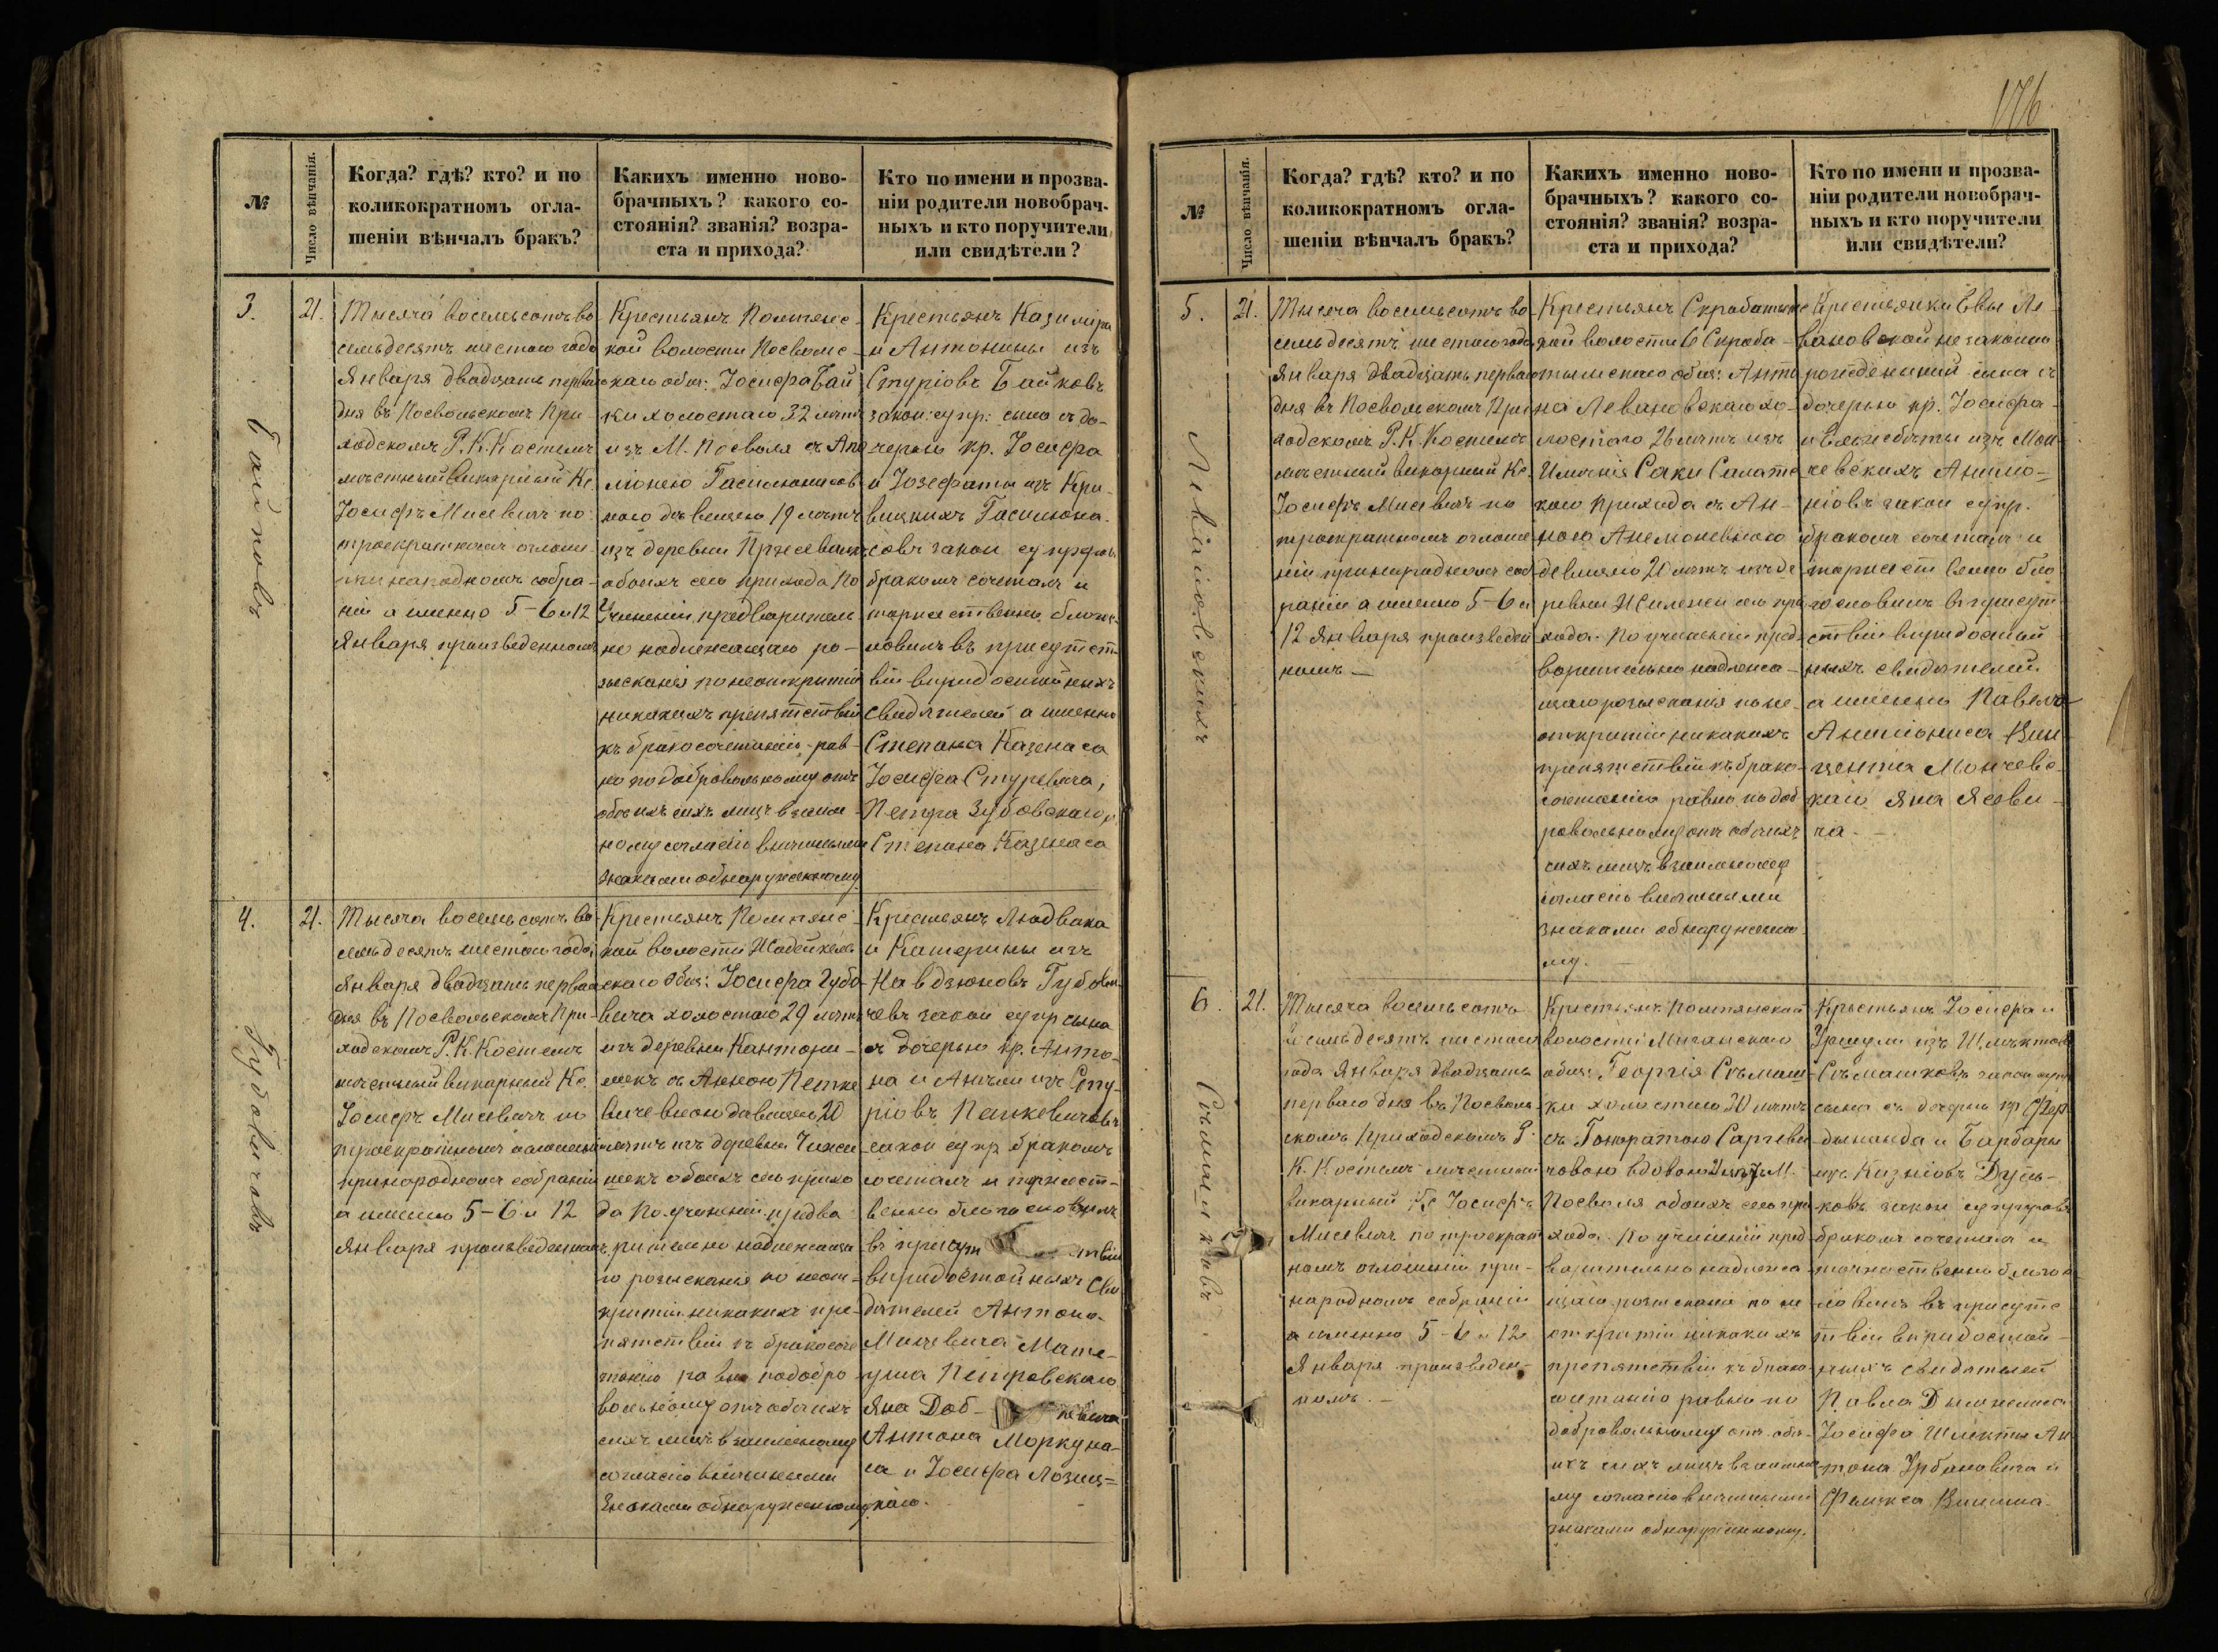 176
№
Число вѣнчанія.
Когда? гдѣ? кто? и по
коликократномъ огла-
шеніи вѣнчалъ бракъ?
Какихъ именно ново-
брачныхъ? какого со-
стоянія? званія? возра-
ста и прихода?
Кто по имени и прозва-
ніи родители новобрач-
ныхъ и кто поручители
или свидѣтели?
3.
21.
Тысяча восемьсотъ во
семьдесятъ шестого года
Января двадцать перваго
дня въ Посвольскомъ При-
ходскомъ Р. К. Костелѣ
мѣстный Викарный Кс.
Іосифъ Мисевичъ по
троекратномъ оглаше
при народномъ собра-
ніи а именно 5-6 и 12
Января произведенномъ
Крестьянъ Помпянс-
кой волости Посвольс-
скаго общ: Іосифа Бай
ки холостаго 32 лѣтъ
изъ М. Посволя съ Апо
лонею
девицею 19 лѣтъ
изъ деревни
обоихъ сего прихода По
Учиненіи предваритель
но надлежащаго ро-
зысканія по неоткрытіи
никакихъ препятствій
къ бракосочетанію рав-
но по добровольному отъ
обоихъ сихъ лицъ взаим
ному согласію внѣшними
знаками обнаруженному
Крестьянъ Казиміра
и Антонины изъ
Стуріовъ Байковъ
закон: супр: сына съ до-
черью кр. Іосифа
и Іозефаты изъ Кри-
вицкихъ
закон супруговъ
бракомъ сочеталъ и
торжественно благос
ловилъ въ присутст
віи виридостойныхъ
свидѣтелей а именно
Степана Казенаса
Іосифа Стуревича,
Петра Зубовскаго и
Степана Казенаса
4.
21.
Тысяча восемьсотъ во
семьдесятъ шестого года
Января двадцать перваго
дня въ Посвольскомъ При-
ходскомъ Р. К. Костелѣ
мѣстный викарный Кс.
Іосифъ Мисевичъ по
троекратномъ оглашеніи
при народномъ собраніи
а именно 5-6 и 12
Января произведенномъ
Крестьянъ Помпянс-
кой волости Жадейкель
скаго Общ: Іосифа Губо
вича холостаго 29 лѣтъ
изъ деревни Кантони-
шекъ съ Анною Петке
вичевною давицею 20
лѣтъ изъ деревни
шекъ обоихъ сего прихо
да По учиненіи предва
рительно надлежаща
го розысканія по неот-
крытіи никакихъ пре-
пятствій къ бракосоче
танію равно по добро
вольному отъ обоихъ
сихъ лицъ взаимному
согласію внѣшними
Знаками обнаруженному
Крестьянъ Людвика
и Катерины изъ
Навдзюновъ Губови-
чевъ закон супр сына
съ дочерью кр. Анто-
на и Анели изъ Сту-
ріовъ Петкевичовъ
закон супр бракомъ
сочеталъ и торжест-
венно благословилъ
въ присутствіи
виридостойныхъ Сви
дѣтелей Антона
Мицевича Мате-
уша Петровскаго
Яна Доб-
Антона Моркуна-
са и Іосифа Лозиц-
каго.
Байковъ
Губовичовъ
№
Число вѣнчанія.
Когда? гдѣ? кто? и по
коликократномъ огла-
шеніи вѣнчалъ бракъ?
Какихъ именно ново-
брачныхъ? какого со-
стоянія? званія? возра-
ста и прихода?
Кто по имени и прозва-
ніи родители новобрач-
ныхъ и кто поручители
или свидѣтели?
5.
21.
Тысяча восемьсотъ во-
семьдесятъ шестого года
Января двадцать перваго
дня въ Посвольскомъ При
ходскомъ Р. К. Костелѣ
мѣстный викарный Кс.
Іосифъ Мисевичъ по
троекратномъ оглаше
ніи при народномъ соб
раніи а именно 5-6 и
12 Января произведен
номъ —
Крестьянъ Скрабатыш
кой волости Скроба-
тышскаго общ: Анто
на Левановскаго хо-
лостаго 26 лѣтъ изъ
Имѣнія Саки Салат
каго прихода съ Ан-
ною
девицею 20 лѣтъ изъ де
ревни сего при
хода. По учиненіи пред
варительно надлежа-
щаго розысканія по не-
открытіи никакихъ
препятствій къ брако-
сочетанію равно по доб
ровольному отъ обоихъ
сихъ лицъ взаимному
согласію внѣшними
знаками обнаруженно
му.
Крестьянки Евы Ле-
вановской незаконно
рожденный сына съ
дочерью кр. Іосифа
и Ельжбеты изъ Мон-
чевскихъ
закон супр.
бракомъ сочеталъ и
торжественно бла
гословилъ въ присут
ствіи виридостой
ныхъ свидѣтелей
а именно Павела
Анилиониса Вин-
центія Мончевс-
каго Яна Ясеви-
ча. —
6.
21.
Тысяча восемьсотъ
восемьдесятъ шестого
года Января двадцать
перваго дня въ Посволь
скомъ Приходскомъ Р.
К. Костелѣ мѣстный
викарный Кс Іосифъ
Мисевичъ по троекрат
номъ оглашеніи при-
народномъ собраніи
а именно 5-6 и 12
Января произведен-
номъ. —
Крестьянъ Помпянской
волости
общ: Георгія Съмаш
ки холостаго 20 лѣтъ
съ Гоноратою
вдовою изъ М.
Посволя обоихъ сего при
хода. По учиненіи пред
варительно надлежа
щаго розысканія по не
открытіи никакихъ
препятствій къ брако
сочетанію равно по
добровольному отъ обо-
ихъ сихъ лицъ взаимно
му согласію внѣшними
знаками обнаруженному.
Крестьянъ Іосифа и
Уршули изъ
Съмашковъ закон супр
сына съ дочерью кр Фер
дынанда и Барбары
изъ Казніовъ
закон супруговъ
бракомъ сочеталъ и
торжественно благо
ловилъ въ присутс
твіи виридостой-
ныхъ свидѣтелей
Павла
Іосифа Ан
тона Урбановича и
Феликса
Левановскихъ
Съмашковъ